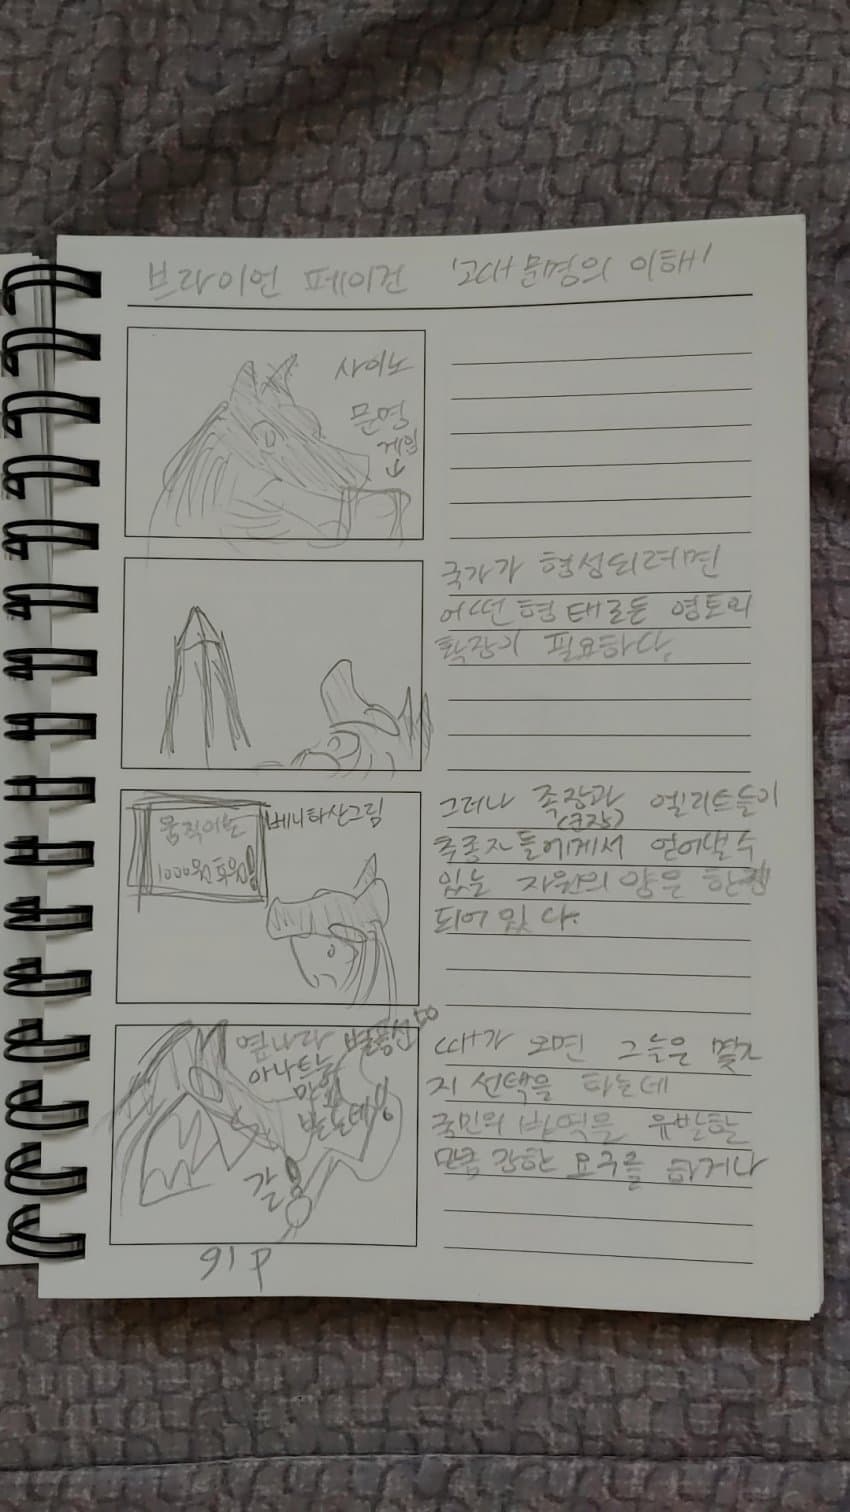 브라이언 페이건 '고대 문명의 이해'
사이노
문명
게임
국가가 형성되려면
어떤 형태로든 영토의
확장이 필요하다.
움직이는
1000원 후원
베니타산그림
그러나 족장과 엘리트들이
(군장)
추종자들에게서 얻어낼 수
있는 자원의 양은 한정
되어 있다.
옆나라
아나트
만
갈
따가 오면 그들은 몇가
지 선택을 하는데
국민의 반역을 유발할
만큼 강한 요구를 하거나
91p